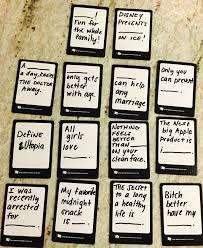 ______!
Fun for the
whole family!
DISNEY
PRESENTS
______
ON ICE!
A ______
a day, keeps
THE DOCTOR
Away.
______
only gets
better
with age.
______
can help
any
marriage
Only you
can prevent
______.
DEFINE
Utopia
All
girls
love
______.
NOTHING
FEELS
BETTER THAN
______ on
your clean
face.
The Next
big Apple
Product is
______!
I was
recently
arrested
for
______.
My favorite
midnight
snack is
______.
The secret
to a long
& healthy
life is
______.
Bitch
better
have my
______.